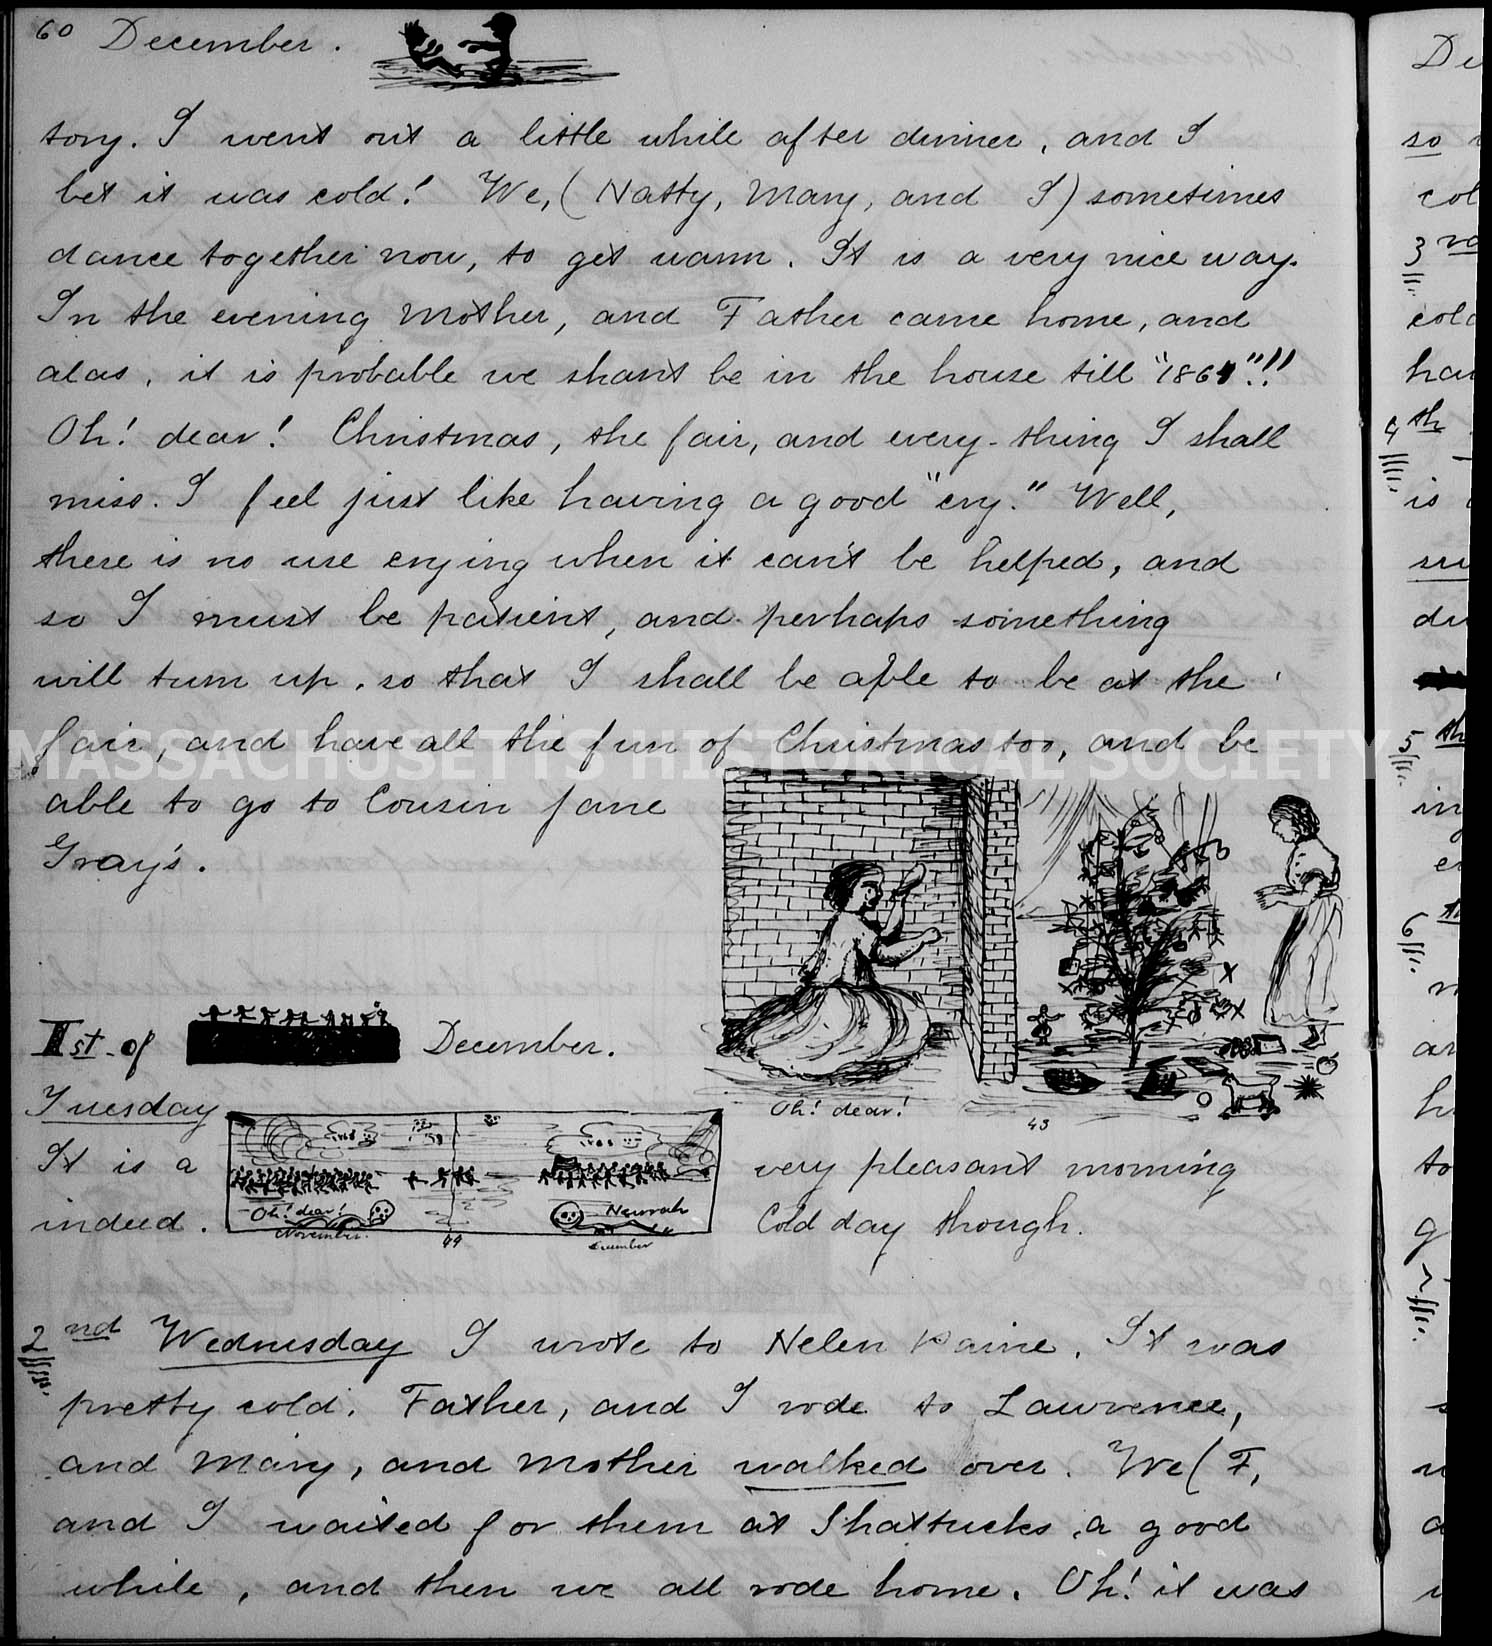 60 December.
tory. I went out a little while after dinner, and I
bet it was cold! We, (Natty, Mary, and I) sometimes
dance together now, to get warm. It is a very nice way.
In the evening Mother, and Father came home, and
alas, it is probable we shan't be in the house till "1864"!!!
Oh! dear! Christmas, the fair, and every-thing I shall
miss. I feel just like having a good "cry." Well,
there is no use crying when it can't be helped, and
so I must be patient, and perhaps something
will turn up, so that I shall be able to be at the
fair, and have all the fun of Christmas too, and be
MASSACHUSETTS HISTORICAL SOCIETY
able to go to Cousin Jane
Gray's.
Ist of December.
Oh! dear!
43
Tuesday
It is a very pleasant morning
indeed. Cold day though.
Oh! dear!
November.
44
Hurrah
December
2nd Wednesday I wrote to Helen Paine. It was
pretty cold. Father, and I rode to Lawrence,
and Mary, and Mother walked over. We (F,
and I waited for them at Shattucks a good
while, and then we all rode home. Oh! it was
so
col
3rd
cold
4th
is
5th
in
6th
to